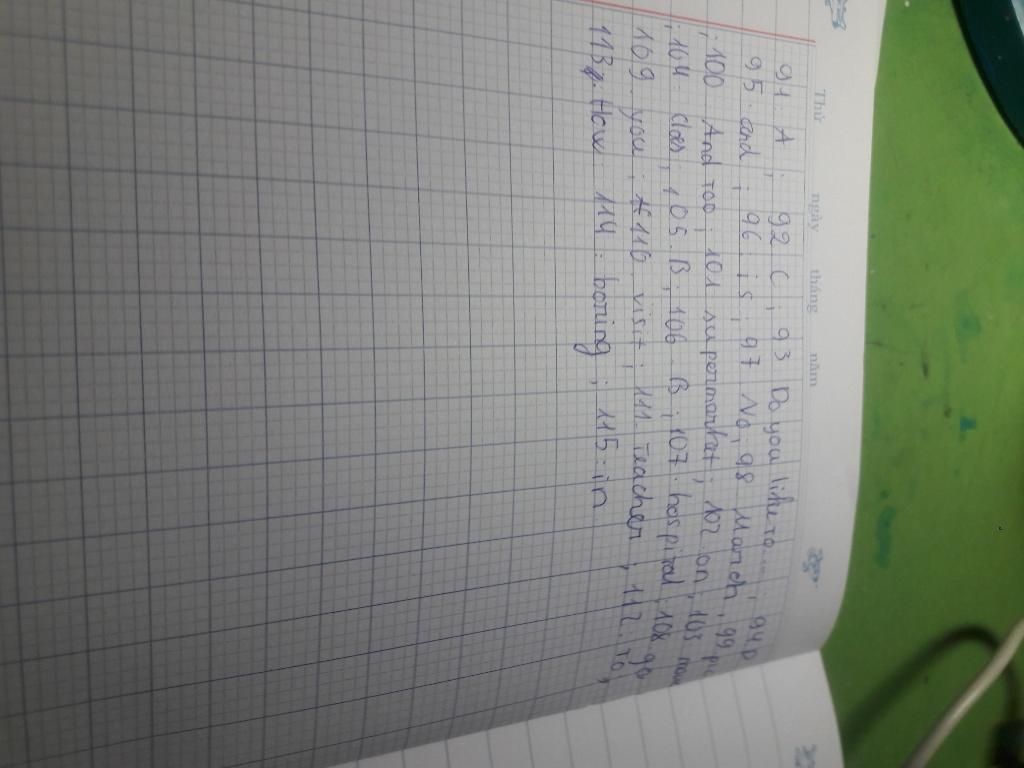 Thứ ngày tháng năm
91. A; 92 C; 93 Do you like to....; 94 D
95. and; 96 is; 97 No; 98 March; 99
; 100 And too; 101 supermarket; 102 on; 103
; 104. class; 105. B; 106 B; 107. hospital; 108 go
109. you; 110 visit; 111. Teacher; 112. to;
113. How 114. boring; 115. in